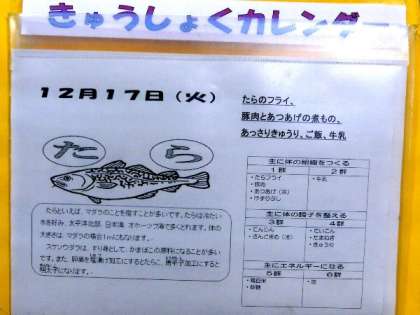 きゅうしょくカレンダー
12月17日（火）
たらのフライ、
豚肉とあつあげの煮もの、
あっさりきゅうり、ご飯、牛乳
たら
たらといえば、マダラのことを指すことが多いです。たらは冷たい
水を好み、北太平洋北部、日本海、オホーツク海で多くとれます。体の
大きさは、マダラの場合1mにもなります。
スケソウダラは、すり身として、かまぼこの原料になることが多い
です。また、卵巣を塩漬け加工にするとたらこ、唐辛子加工にすると
明太子になります。
主に体の組織をつくる
1群 2群
・たらフライ ・牛乳
・豚肉
・あつあげ
主に体の調子を整える
3群 4群
・にんじん ・だいこん
・さんどまめ ・たまねぎ
・きゅうり
主にエネルギーになる
5群 6群
・精白米 ・油
・砂糖